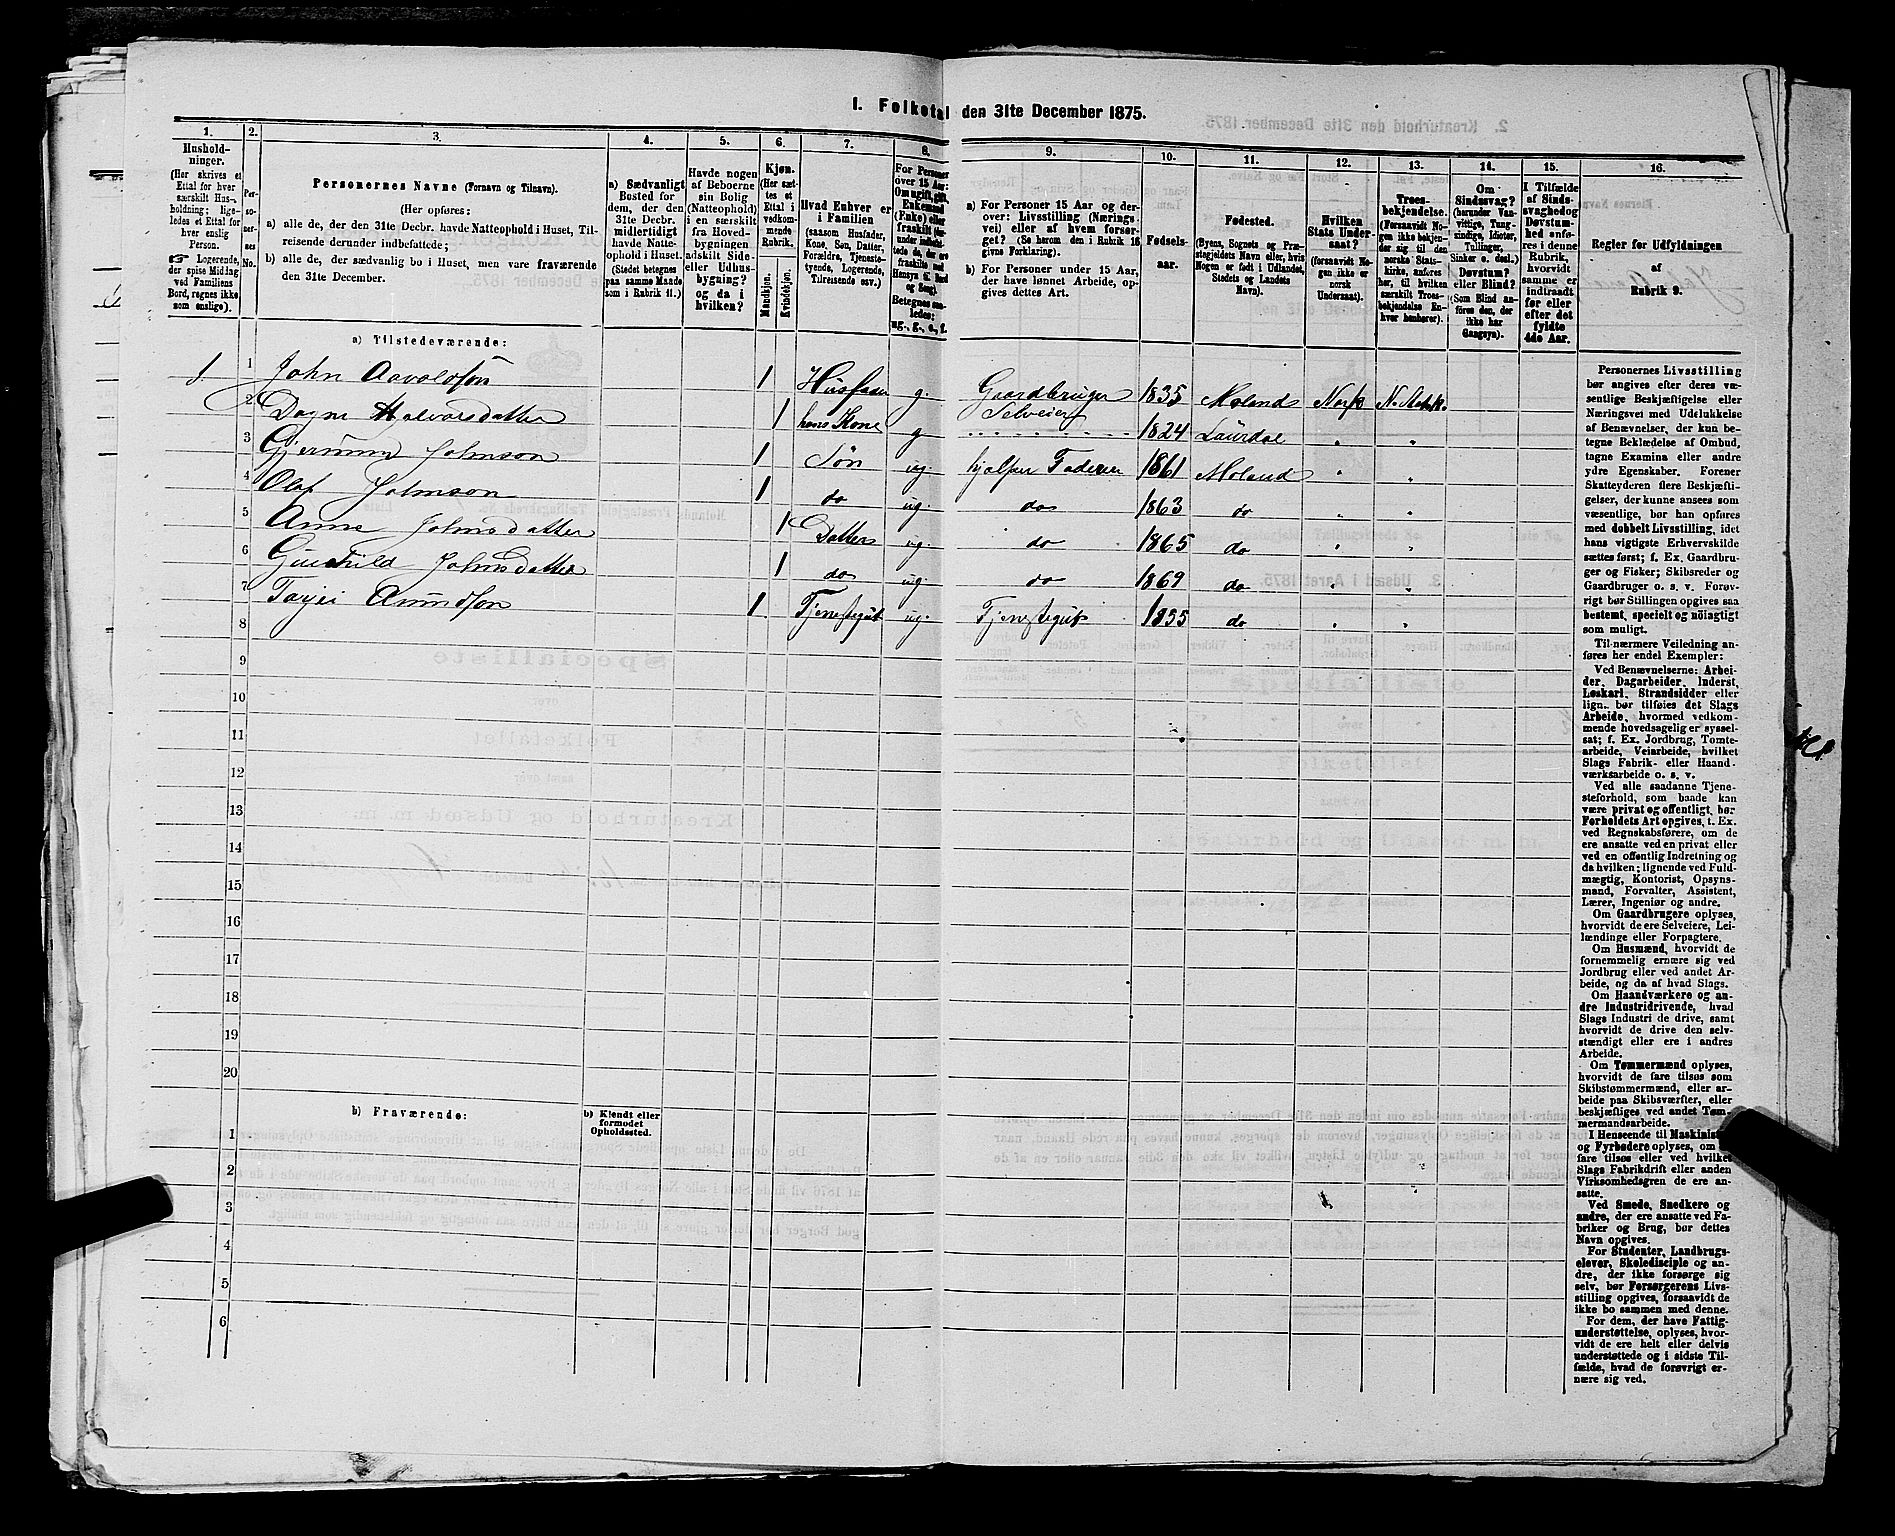 1. Folketal den 31te December 1875.
1. 2. 3. 4. 5. 6. 7. 8. 9. 10. 11. 12. 13. 14. 15. 16.
Hushold-
ninger.
(Her skrives et
Ettal for hver
særskilt Hus-
holdning; lige-
ledes et Ettal for
hver enslig
Person.
☛ Logerende,
der spise Middag
ved Familiens
Bord, regnes ikke
som enslige).
Per-
so-
ner-
nes
No.
Personernes Navne (Fornavn og Tilnavn).
(Her opføres:
a) alle de, der den 31te Decbr. havde Natteophold i Huset, Til-
reisende derunder indbefattede;
b) alle de, der sædvanlig bo i Huset, men vare fraværende
den 31te December.
a) Sædvanligt
Bosted for
dem, der den
31te Decbr.
midlertidigt
havde Natte-
ophold i Huset.
(Stedet betegnes
paa samme Maade
som i Rubrik 11.)
Havde nogen
af Beboerne
sin Bolig
(Natteophold)
i en særskilt
fra Hoved-
bygningen
adskilt Side-
eller Udhus-
bygning?
og da i
hvilken?
Kjøn.
(Her sæt-
tes et
Ettal i
vedkom-
mende
Rubrik.
Mandkjøn.
Kvindekjøn.
Hvad Enhver er
i Familien
(saasom Husfader,
Kone, Søn, Datter,
Forældre, Tjeneste-
tyende, Logerende,
Tilreisende osv.)
For Personer
over 15 Aar:
Om ugift, gift,
Enkemand
(Enke) eller
fraskilt
Betegnes saa-
ledes:
ug., g., e., f.
a) For Personer 15 Aar og der-
over: Livsstilling (Nærings-
vei) eller af hvem forsør-
get? (Se herom den i Rubrik 16
givne Forklaring).
b) For Personer under 15 Aar,
der have lønnet Arbeide, op-
gives dettes Art.
Fødsels-
aar.
Fødested.
(Byens, Sognets og Præ-
stegjeldets Navn eller, hvis
Nogen er født i Udlandet,
Stedets og Landets
Navn).
Hvilken
Stats Under-
saat?
(forsaavidt No-
gen ikke er
norsk
Undersaat).
Troes-
bekjendelse.
(Forsaavidt No-
gen ikke bekjen-
der sig til den
norske Stats-
kirke, anføres
her, til hvilken
særskilt Troes-
bekjendelse En-
hver henhører).
Om
Sindssvag?
(herunder Van-
vittige, Tung-
sindige, Idioter,
Tullinger,
Sinker o. desl.)
Døvstum?
eller Blind?
(Som Blind an-
føres den, der
ikke har
Gangsyn).
I Tilfælde
af Sinds-
svaghed og
Døvstum-
hed anfø-
res i denne
Rubrik,
hvorvidt
samme er
indtraadt
før eller
efter det
fyldte
4de Aar.
Regler for Udfyldningen
af
Rubrik 9.
a) Tilstedeværende:
1 1 John Aavoldson 1 Husfader g. Gaardbruger Selveier 1835 Moland Norsk N. Statsk.
2 Dagne Halvorsdatter 1 hans Kone g 1824 Laurdal " "
3 Gjermun Johnson 1 Søn ug hjælper Faderen 1861 Moland " "
4 Olaf Johnson 1 do ug. do 1863 do " "
5 Anne Johnsdatter 1 Datter ug do 1865 do " "
6 Gunhild Johnsdatter 1 do ug. do 1869 do " "
7 Tarjei Aamundson 1 Tjenestegut ug. Tjenestegut 1855 do " "
8
9
10
11
12
13
14
15
16
17
18
19
20
b) Fraværende:
b) Kjendt eller
formodet
Opholdssted.
1
2
3
4
5
6
Personernes Livsstilling
bør angives efter deres væ-
sentlige Beskjæftigelse eller
Næringsvei med Udelukkelse
af Benævnelser, der kun be-
tegne Beklædelse af Ombud,
tagne Examina eller andre
ydre Egenskaber. Forener
Skatteyderen flere Beskjæfti-
gelser, der kunne ansees som
væsentlige, bør han opføres
med dobbelt Livsstilling, idet
hans vigtigste Erhvervskilde
sættes først; f. Ex. Gaardbru-
ger og Fisker; Skibsreder og
Gaardbruger o. s. v. Forøv-
rigt bør Stillingen opgives saa
bestemt, specielt og nöiagtigt
som muligt.
Til nærmere Veiledning an-
føres her endel Exempler:
Ved Benævnelserne: Arbei-
der, Dagarbeider, Inderst,
Løskarl, Strandsidder eller
lign. bør tilføies det Slags
Arbeide, hvormed vedkom-
mende hovedsagelig er syssel-
sat; f. Ex. Jordbrug, Tomte-
arbeide, Veiarbeide, hvilket
Slags Fabrik- eller Haand-
værksarbeide o. s. v.
Ved alle saadanne Tjene-
steforhold, som baade kan
være privat og offentligt, bør
Forholdets Art opgives, t. Ex.
ved Regnskabsførere, om de
ere ansatte ved en privat eller
ved en offentlig Indretning og
da hvilken; lignende ved Fuld-
mægtig, Kontorist, Opsyns-
mand, Forvalter, Assistent,
Lærer, Ingeniør og andre.
Om Gaardbrugere oplyses,
hvorvidt de ere Selveiere, Lei-
lændinge eller Forpagtere.
Om Husmænd, hvorvidt de
fornemmelig ernære sig ved
Jordbrug eller ved andet Ar-
beide, og da af hvad Slags.
Om Haandværkere og an-
dre Industridrivende, hvad
Slags Industri de drive, samt
hvorvidt de drive den selv-
stændigt eller ere i andres
Arbeide.
Om Tømmermænd oplyses,
hvorvidt de fare tilsøs som
Skibstømmermænd, eller ar-
beide paa Skibsværfter, eller
beskjæftiges ved andet Tøm-
mermandsarbeide.
I Henseende til Maskinister
og Fyrbødere oplyses, om de
fare tilsøs eller ved hvilket
Slags Fabrikdrift eller anden
Virksomhedsgren de ere an-
satte.
Ved Smede, Snedkere og
andre, der ere ansatte ved Fa-
briker og Brug, bør dettes
Navn opgives.
For Studenter, Landbrugs-
elever, Skoledisciple og an-
dre, der ikke forsørge sig
selv, bør Forsørgerens Livs-
stilling opgives, forsaavidt de
ikke bo sammen med denne.
For dem, der have Fattig-
understøttelse, oplyses, hvor-
vidt de ere helt eller delvis
understøttede og i sidste Til-
fælde, hvad de forøvrigt er-
nære sig ved.